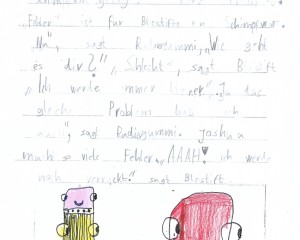 „Felder" ist für Bleistifte ein Schimpfwort.
„Na", sagt Radiergummi, „Wie geht
es dir?" „Schlecht", sagt Bleistift
„Ich werde immer kleiner". „Ja das
gleiche Problem hab ich
auch", sagt Radiergummi. Joshua
macht so viele Felder. „AAAH! ich werde
noch verrückt!" sagt Bleistift